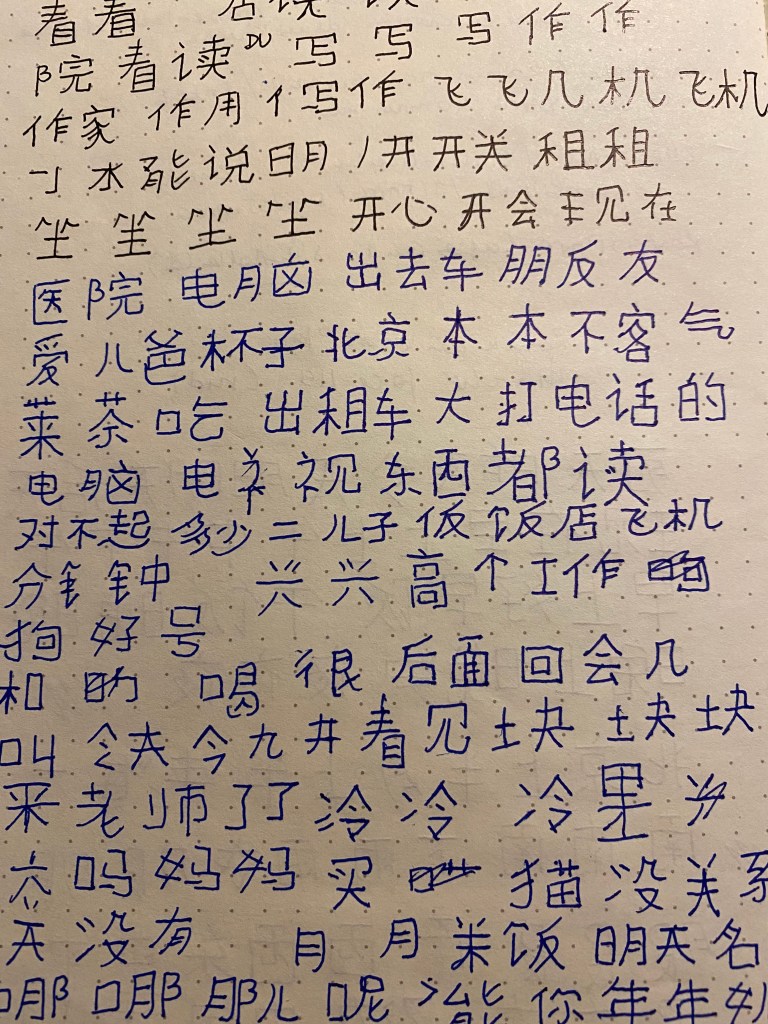 看看 店说
院看读 DU 写写写作作
作家 作用 写作 飞飞几机飞机
水能说明 开开关租租
坐坐坐坐 开心开会见在
医院 电脑 出去车朋反友
爱儿爸杯子北京本本不客气
菜茶吃出租车大打电话的
电脑 电视东西都读
对不起多少二儿子饭饭店飞机
分钟 兴兴高个工作
狗好号
和 喝很后面回会几
叫 今九井看见块块块
来老师了了冷冷冷里
六吗妈妈买 猫没关系
天没有 月月米饭明天名
哪哪那儿呢能你年年